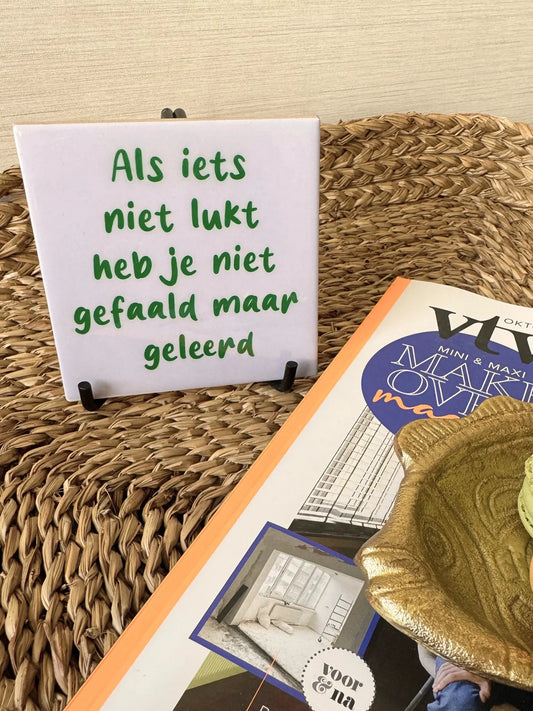 Als iets
niet lukt
heb je niet
gefaald maar
geleerd
MINI & MAXI
voor
&na